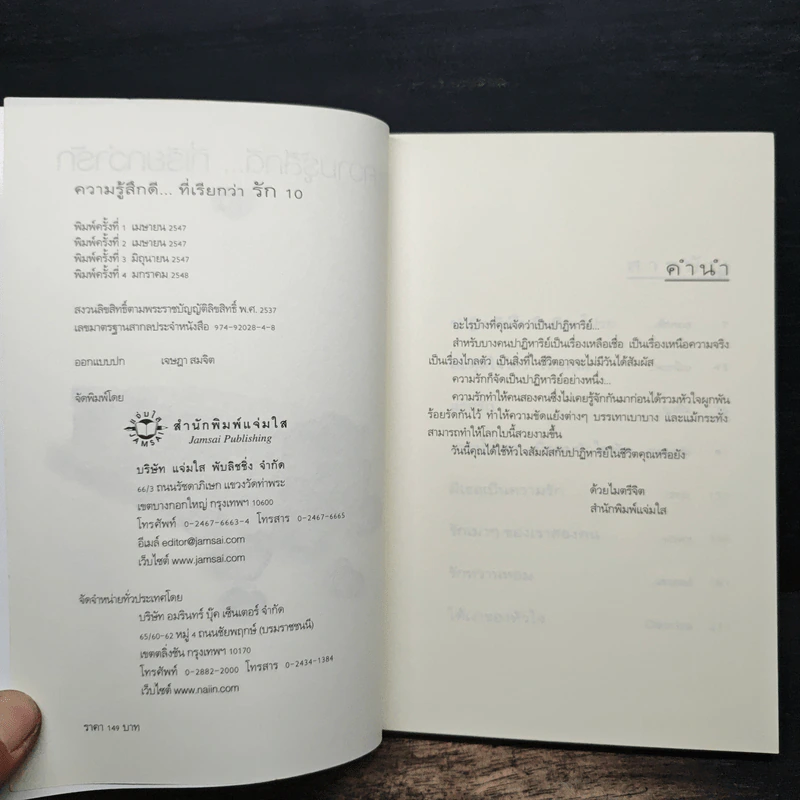 ความรู้สึกดี... ที่เรียกว่า รัก 10
พิมพ์ครั้งที่ 1 เมษายน 2547
พิมพ์ครั้งที่ 2 เมษายน 2547
พิมพ์ครั้งที่ 3 มิถุนายน 2547
พิมพ์ครั้งที่ 4 มกราคม 2548
สงวนลิขสิทธิ์ตามพระราชบัญญัติลิขสิทธิ์ พ.ศ. 2537
เลขมาตรฐานสากลประจำหนังสือ 974-92028-4-8
ออกแบบปก เจษฎา สมจิต
จัดพิมพ์โดย
แจ่มใส
JAMSAI
สำนักพิมพ์แจ่มใส
Jamsai Publishing
บริษัท แจ่มใส พับลิชชิ่ง จำกัด
66/3 ถนนรัชดาภิเษก แขวงวัดท่าพระ
เขตบางกอกใหญ่ กรุงเทพฯ 10600
โทรศัพท์ 0-2467-6663-4 โทรสาร 0-2467-6665
อีเมล์ editor@jamsai.com
เว็บไซต์ www.jamsai.com
จัดจำหน่ายทั่วประเทศโดย
บริษัท อมรินทร์ บุ๊ค เซ็นเตอร์ จำกัด
65/60-62 หมู่ 4 ถนนชัยพฤกษ์ (บรมราชชนนี)
เขตตลิ่งชัน กรุงเทพฯ 10170
โทรศัพท์ 0-2882-2000 โทรสาร 0-2434-1384
เว็บไซต์ www.naiin.com
ราคา 149 บาท
คำนำ
อะไรบ้างที่คุณจัดว่าเป็นปาฏิหาริย์...
สำหรับบางคนปาฏิหาริย์เป็นเรื่องเหลือเชื่อ เป็นเรื่องเหนือความจริง
เป็นเรื่องไกลตัว เป็นสิ่งที่ในชีวิตอาจจะไม่มีวันได้สัมผัส
ความรักก็จัดเป็นปาฏิหาริย์อย่างหนึ่ง...
ความรักทำให้คนสองคนซึ่งไม่เคยรู้จักกันมาก่อนได้รวมหัวใจผูกพัน
ร้อยรัดกันไว้ ทำให้ความขัดแย้งต่างๆ บรรเทาเบาบาง และแม้กระทั่ง
สามารถทำให้โลกใบนี้สวยงามขึ้น
วันนี้คุณได้ใช้หัวใจสัมผัสกับปาฏิหาริย์ในชีวิตคุณหรือยัง
ด้วยไมตรีจิต
สำนักพิมพ์แจ่มใส